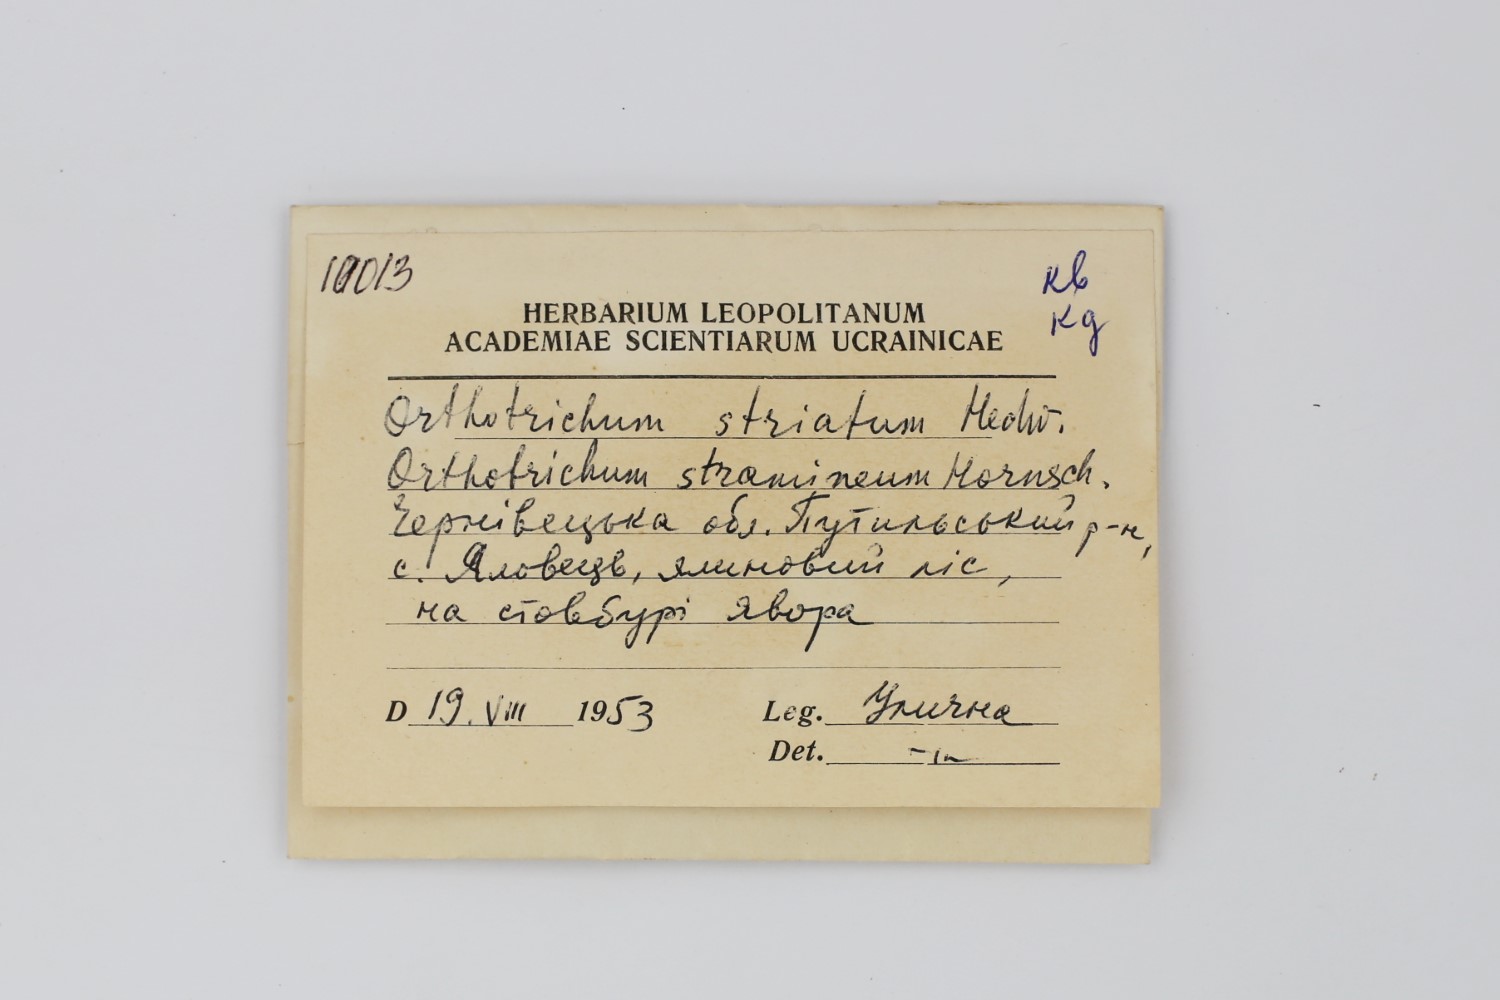 10013
кв
кд
HERBARIUM LEOPOLITANUM
ACADEMIAE SCIENTIARUM UCRAINICAE
Orthotrichum striatum Hedw.
Orthotrichum stramineum Hornsch.
Чернівецька обл. Путильський р-н,
с. Яловець, ялиновий ліс,
на стовбурі явора
D 19. VIII 1953
Leg. Улична
Det. -"-